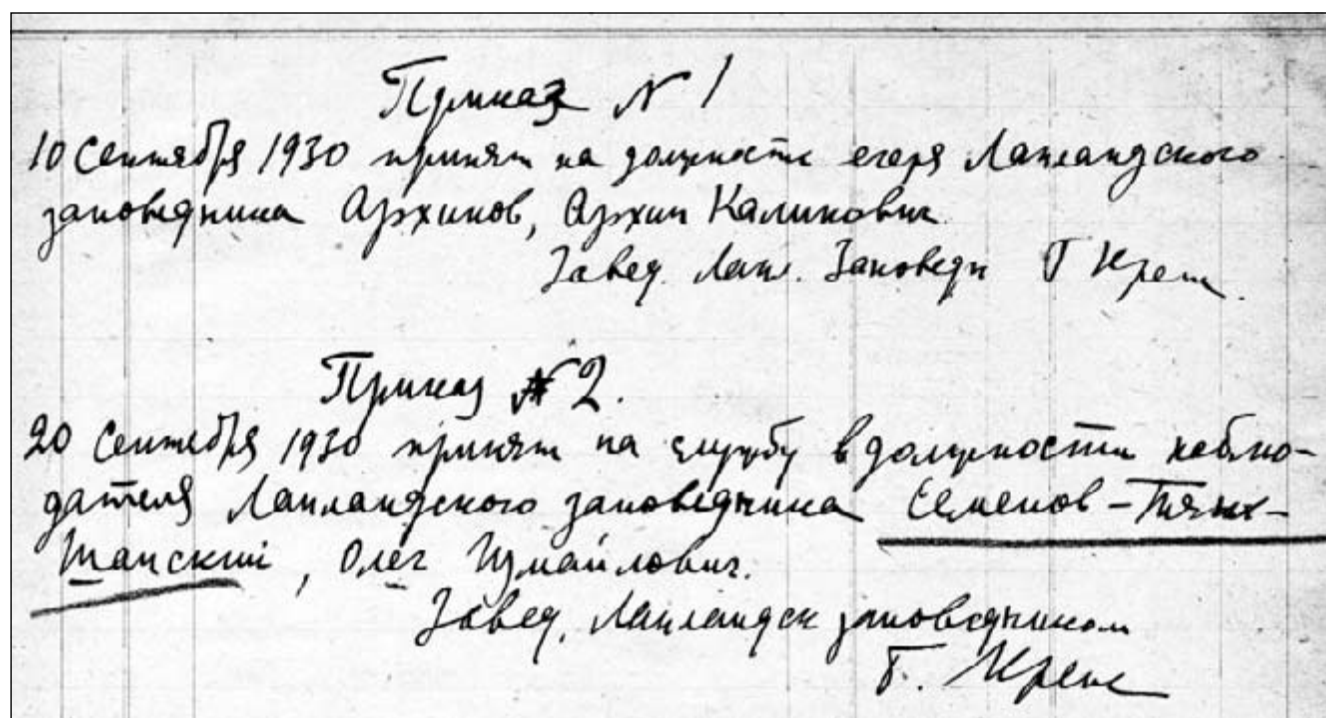 Приказ N 1
10 Сентября 1930 принят на должность егеря Лапландского
заповедника Архипов, Архип Калинович.
Завед. Лапл. Заповедн Г Крепс.
Приказ № 2.
20 Сентября 1930 принят на службу в должности наблю-
дателя Лапландского заповедника Семенов-Тянь-
Шанский, Олег Измайлович.
Завед. Лапландск заповедником
Г. Крепс